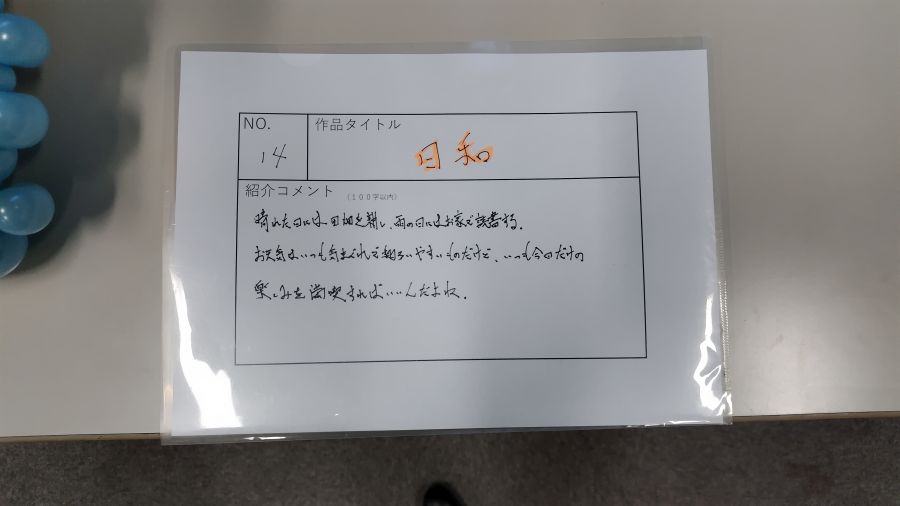 NO.
14
作品タイトル
日和
紹介コメント (100字以内)
晴れた日には田畑を耕し、雨の日にはお家で読書する。
お天気はいつも気まぐれで移ろいやすいものだけど、いつも今日だけの
楽しみを満喫すればいいんだよね。